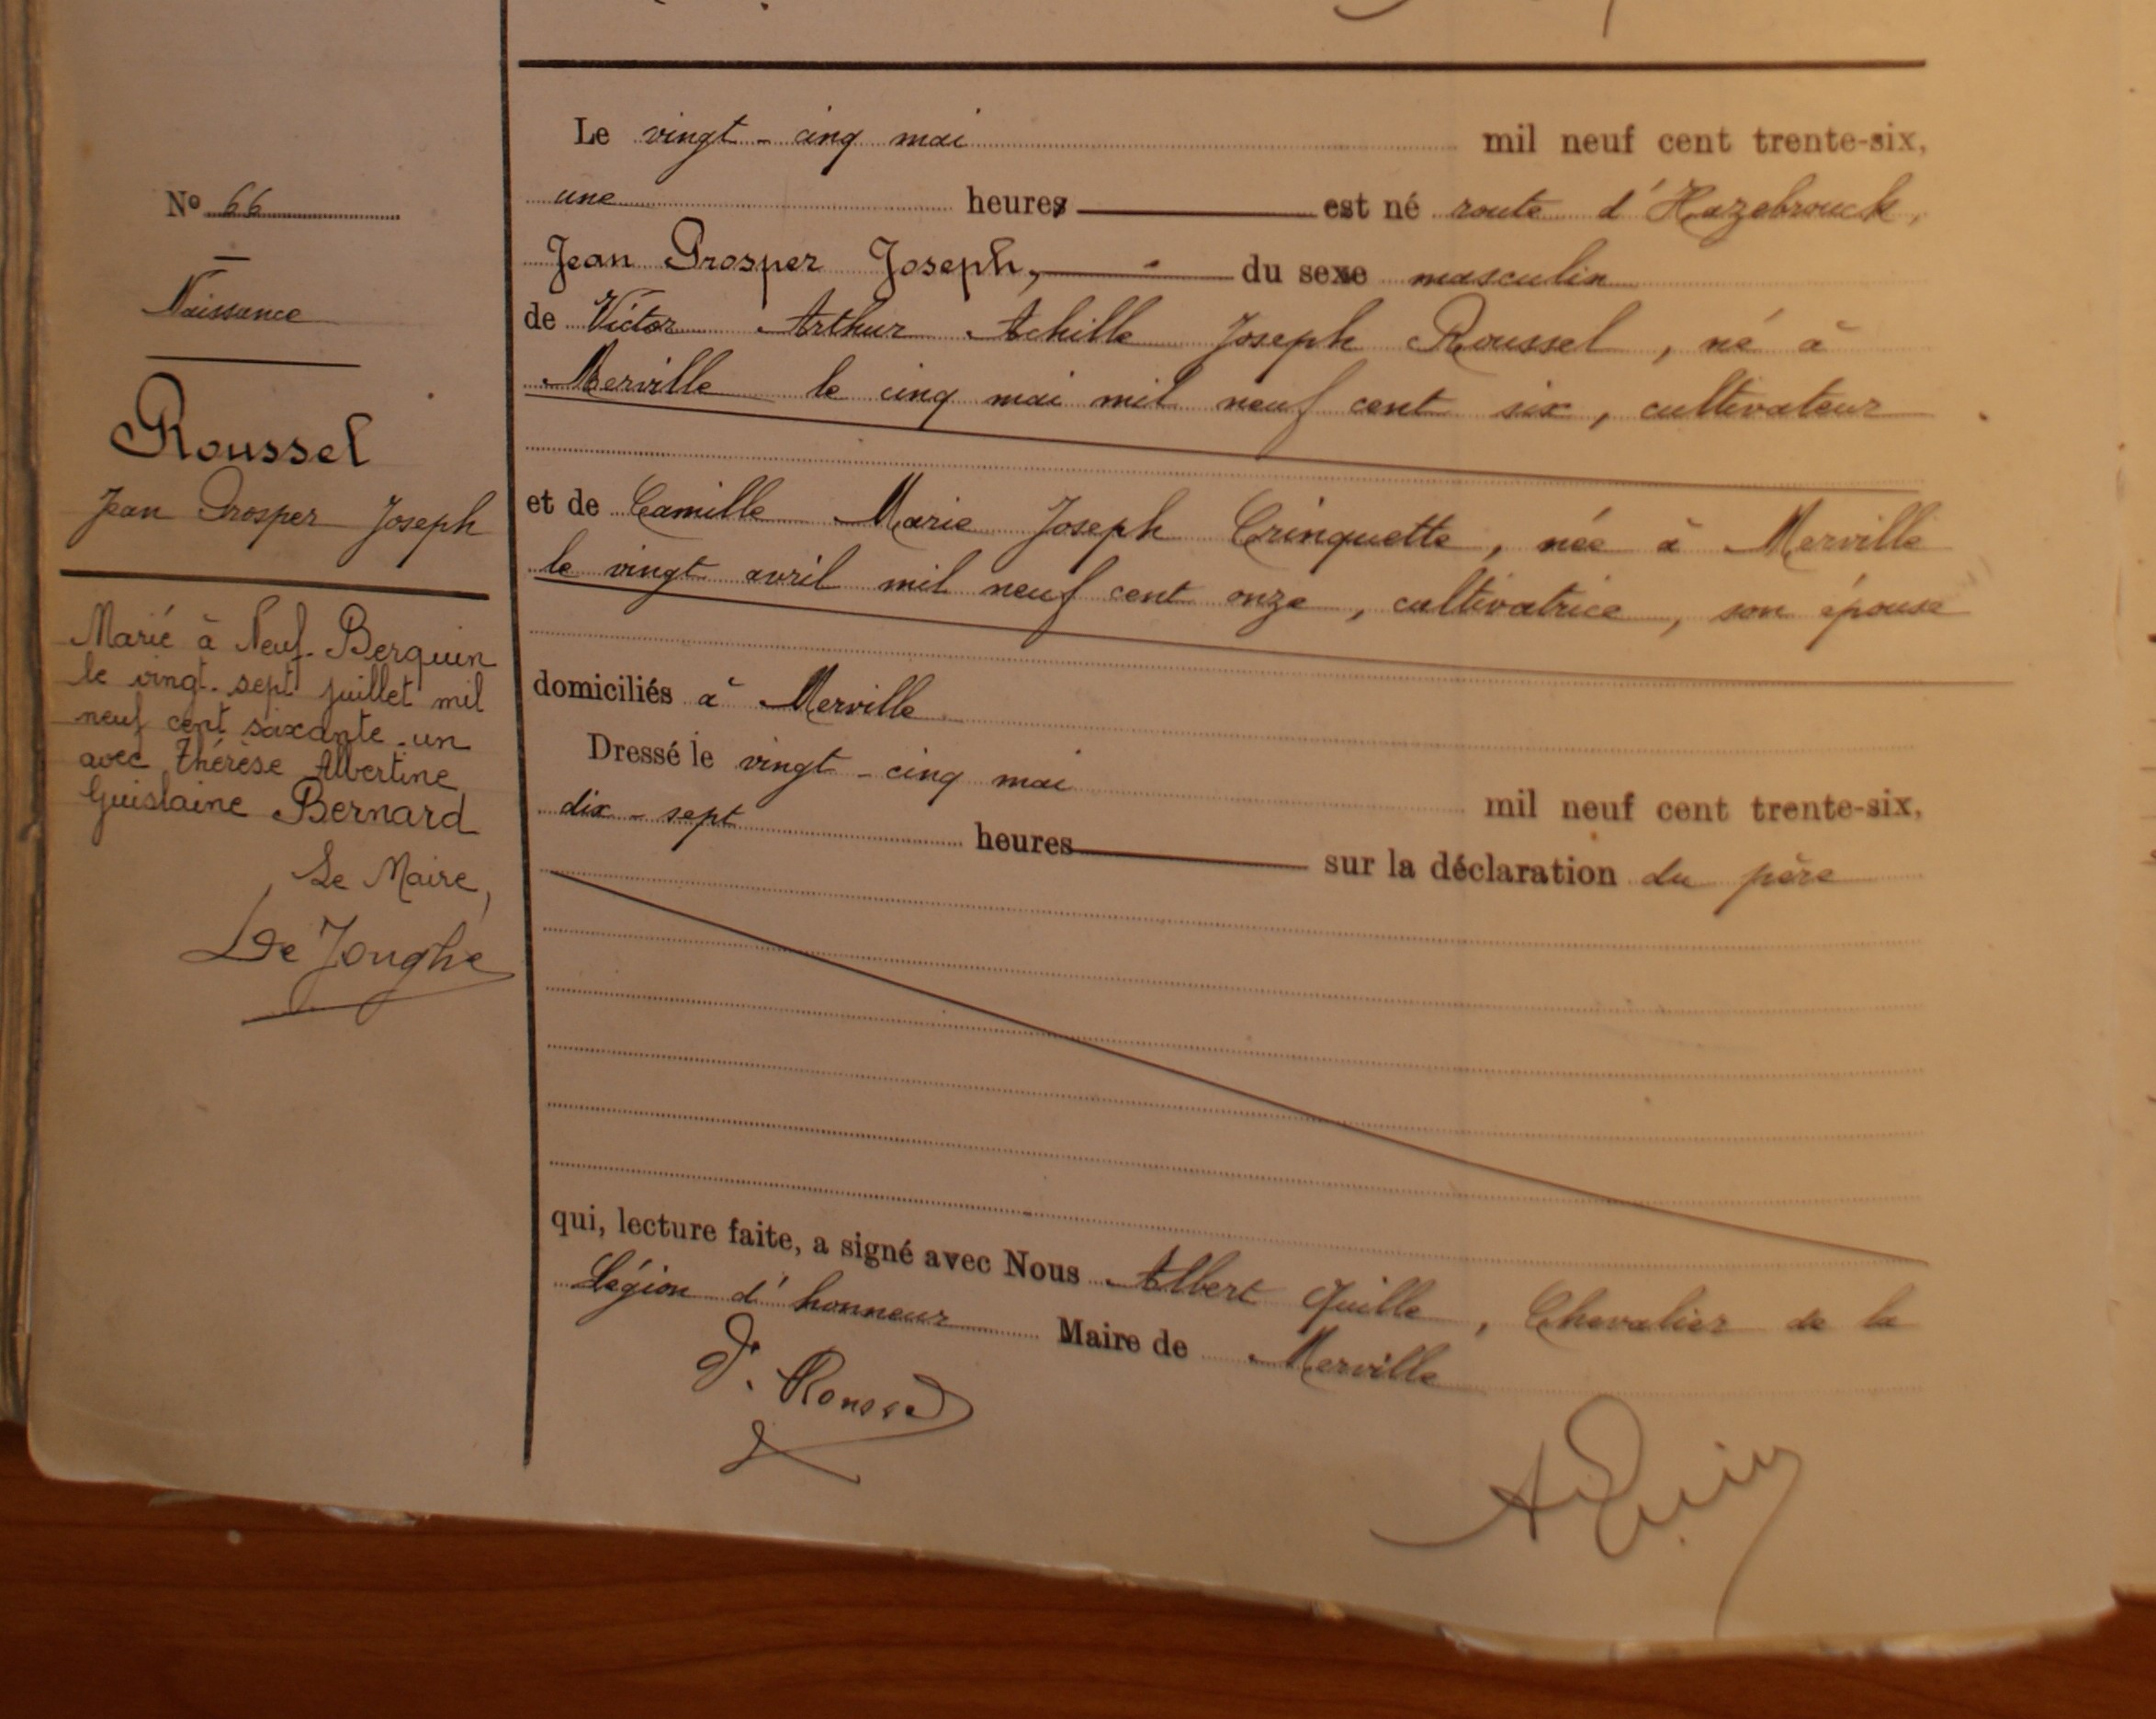 N° 66
Naissance
Roussel
Jean Prosper Joseph
Marié à Neuf-Berquin
le vingt-sept juillet mil
neuf cent soixante-un
avec Thérèse Albertine
Guislaine Bernard
Le Maire,
De Jonghe
Le vingt-cinq mai mil neuf cent trente-six,
une heures est né route d'Hazebrouck,
Jean Prosper Joseph, du sexe masculin
de Victor Arthur Achille Joseph Roussel, né à
Merville le cinq mai mil neuf cent six, cultivateur
et de Camille Marie Joseph Crinquette, née à Merville
le vingt avril mil neuf cent onze, cultivatrice, son épouse
domiciliés à Merville
Dressé le vingt-cinq mai mil neuf cent trente-six,
dix-sept heures sur la déclaration du père
qui, lecture faite, a signé avec Nous Albert Quille, Chevalier de la
Légion d'honneur Maire de Merville
Roussel